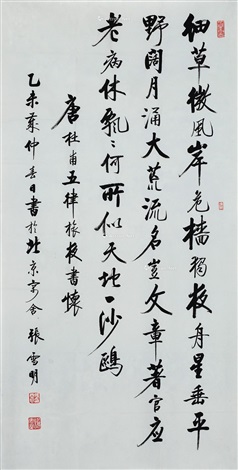 細草微風岸危檣獨夜舟星垂平
野闊月涌大荒流名豈文章著官应
老病休飄〻何所似天地一沙鷗
唐杜甫五律旅夜書懷
乙未歲仲春日書於北京寓舍 張雪明